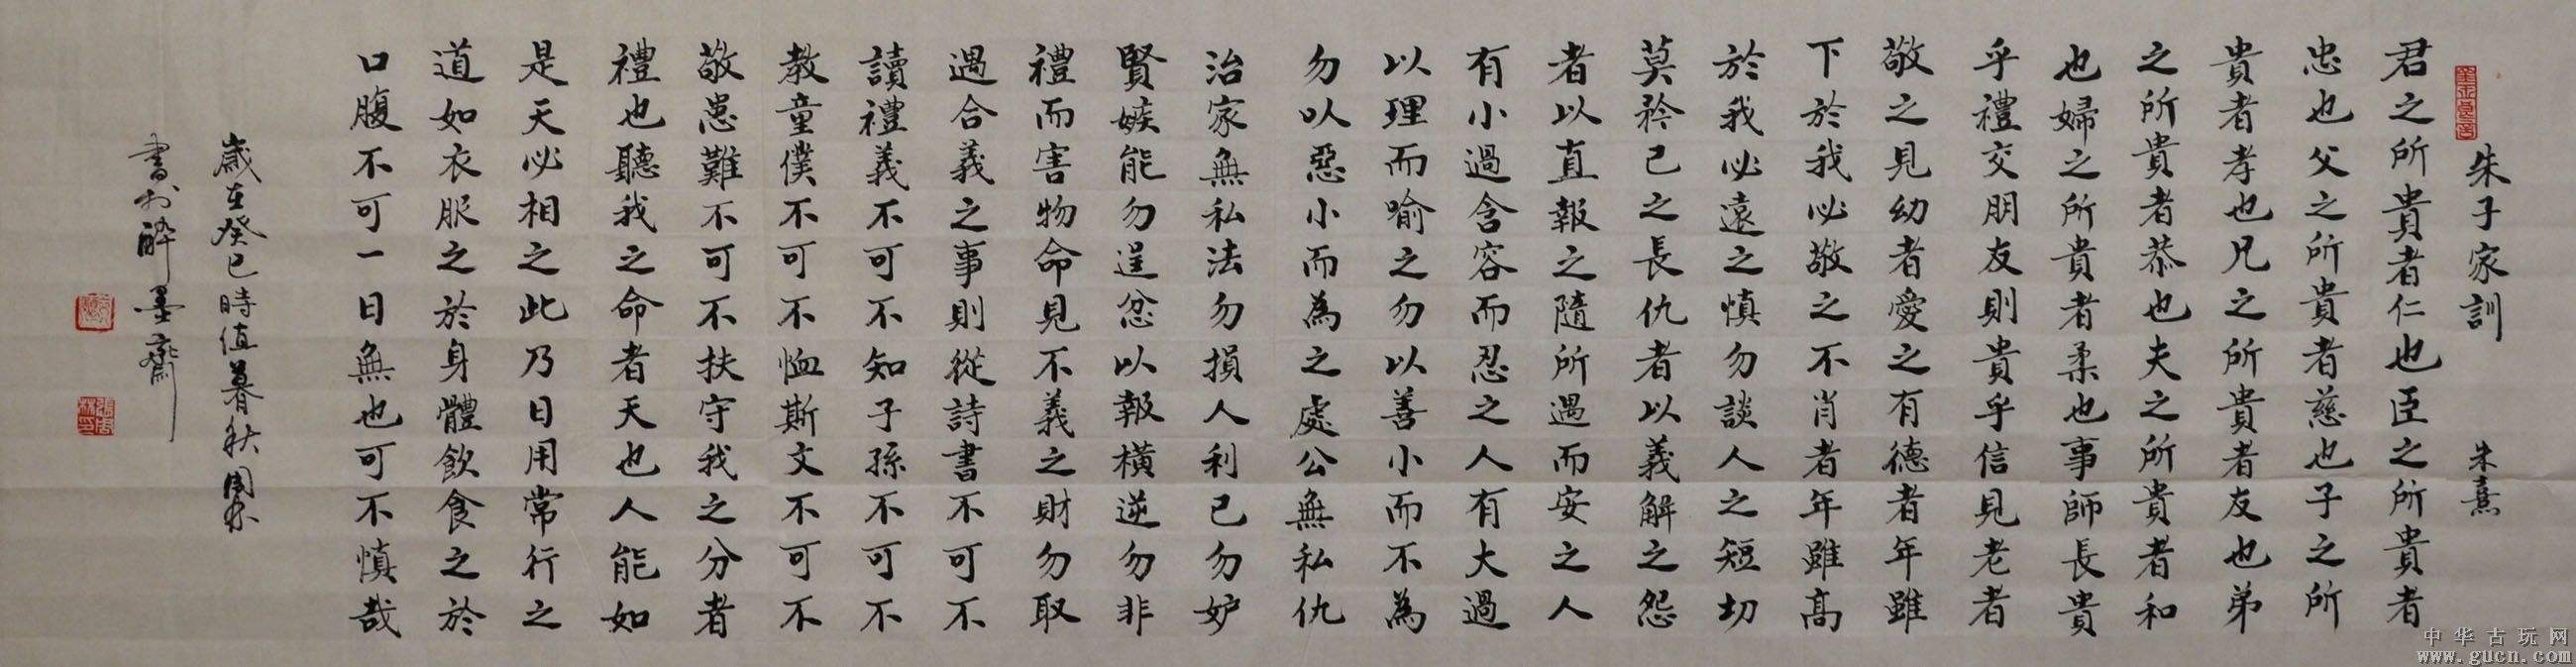 朱子家訓 朱熹
君之所貴者仁也臣之所貴者
忠也父之所貴者慈也子之所
貴者孝也兄之所貴者友也弟
之所貴者恭也夫之所貴者和
也婦之所貴者柔也事師長貴
乎禮交朋友則貴乎信見老者
敬之見幼者愛之有德者年雖
下於我必敬之不肖者年雖高
於我必遠之慎勿談人之短切
莫矜己之長仇者以義解之怨
者以直報之隨所遇而安之人
有小過含容而忍之人有大過
以理而喻之勿以善小而不為
勿以惡小而為之處公無私仇
治家無私法勿損人利己勿妒
賢嫉能勿逞忿以報橫逆勿非
禮而害物命見不義之財勿取
遇合義之事則從詩書不可不
讀禮義不可不知子孫不可不
教童僕不可不恤斯文不可不
敬患難不可不扶守我之分者
禮也聽我之命者天也人能如
是天必相之此乃日用常行之
道如衣服之於身體飲食之於
口腹不可一日無也可不慎哉
歲在癸巳時值暮秋周林
書於醉墨齋
中华古玩网
www.gucn.com